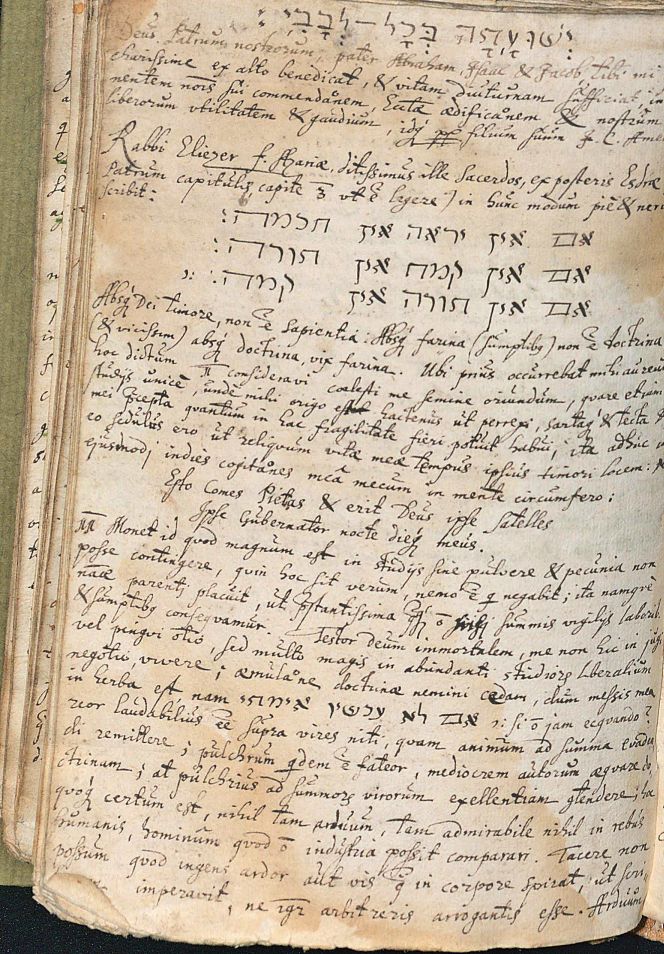 יְשׁוּעָתָהּ בְּכָל־לְבָבִי :
Deus Patrum nostrorum, pater Abraham, Isaac & Jacob, tibi mi
charissime ex alto benedicat, & vitam diuturnam sufficiat, in
nentem nois sui commendanem, Eccta ædificanem & nostrum
liberorum vtilitatem & gaudium, idq filium suum J. C. Amen
Rabbi Eliezer f. Hariæ, ditissimus ille Sacerdos, ex posteris Esdræ
Patrum capitulis, capite 3 vt ē legere) in hunc modum piè & nerv
scribit:
אם אין יראה אין חכמה :
אם אין קמח אין תורה :
אם אין תורה אין קמה :
Absq Dei timore non ē Sapientia: Absq farina (sumptibq) non ē doctrina
(& vicissim) absq doctrina, vix farina. Ubi prius occurrebat mihi aureum
hoc dictum consideravi cœlesti me semine oriundum, quare etiam
studijs unicè, unde mihi origo hactenus ut perrexi, sartaq & tecta
mei præcepta quantum in hac fragilitate fieri potuit habui, ita adhuc
eo sedulus ero, ut reliquum vitæ meæ tempus ipsius timori locem:
ejusmodj indies cogitānes mecum in mente circumfero:
Esto Comes Pietas & erit Deus ipse satelles
Ipse Gubernator nocte dieq meus.
Monet id quod magnum est in studijs sine pulvere & pecunia non
posse contingere, quin hoc sit verum, nemo ē q negabit; ita namque
naæ parenti placuit, ut præstantissima qq ō nisi summis vigilijs laborib.
& sumptibq consequamur. Testor deum immortalem, me non hic in
vel pingvi otio, sed multo magis in abundanti studiorum liberalium
negotio, vivere; æmulāne doctrinæ nemini cedam, dum messis mea
in herba est nam אם לא עכשיו אימתי : si ō jam ecquando?
reor laudabilius ēē supra vires niti, quam animum ad summa evaden
di remittere; pulchrum qdem ē fateor, mediocrem autorum æquare do
ctrinam; at pulchrius ad summorum virorum exellentiam contendere; hoc
quoq certum est, nihil tam arduum, tam admirabile nihil in rebus
humanis, hominum quod ō industria possit comparari. Tacere non
possum quod ingens ardor aut vis q in corpore spirat, ut scri
imperavit, ne igr arbitreris arrogantis esse. Arduum